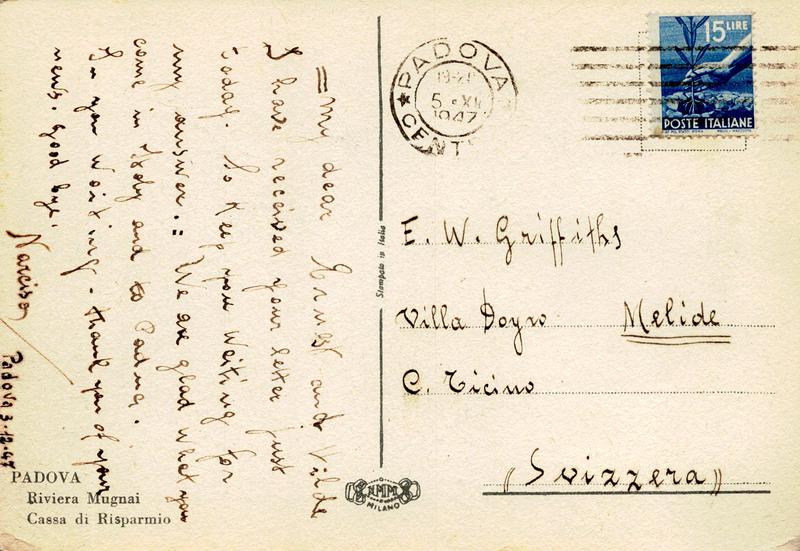 = My dear Ernest and Vilde
I have received your letter just
today. keep you waiting for
my answer. = We are glad what you
come in Italy and to Padua.
you waiting - thank you of your
news. Good bye.
Narciso
Padova 3.12.47
PADOVA
Riviera Mugnai
Cassa di Risparmio
Stampato in Italia
NMM
MILANO
PADOVA
19-21
5 XII
1947
CENT
15 LIRE
POSTE ITALIANE
E. W. Griffiths
Villa Doyro Melide
C. Ticino
"Svizzera"